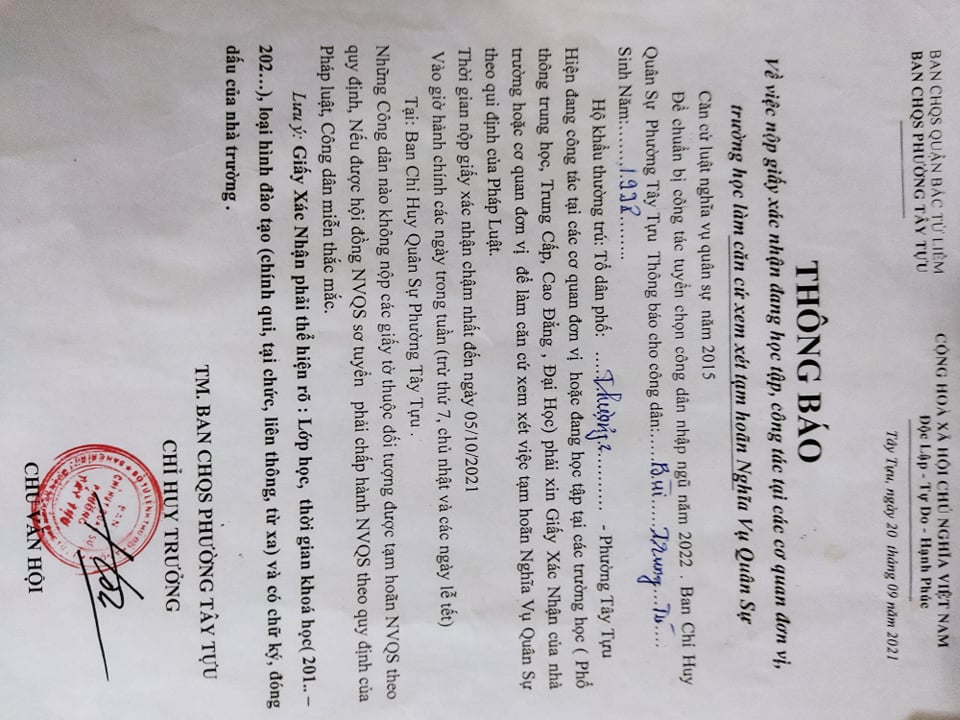 BAN CHQS QUẬN BẮC TỪ LIÊM
BAN CHQS PHƯỜNG TÂY TỰU
CỘNG HOÀ XÃ HỘI CHỦ NGHĨA VIỆT NAM
Độc Lập - Tự Do - Hạnh Phúc
Tây Tựu, ngày 20 tháng 09 năm 2021
THÔNG BÁO
Về việc nộp giấy xác nhận đang học tập, công tác tại các cơ quan đơn vị,
trường học làm căn cứ xem xét tạm hoãn Nghĩa Vụ Quân Sự
Căn cứ luật nghĩa vụ quân sự năm 2015
Để chuẩn bị công tác tuyển chọn công dân nhập ngũ năm 2022 . Ban Chỉ Huy
Quân Sự Phường Tây Tựu Thông báo cho công dân:.....Bùi.....Trung...Tú....
Sinh Năm:.......1998........
Hộ khẩu thường trú: Tổ dân phố: .....Thượng 2.......... - Phường Tây Tựu
Hiện đang công tác tại các cơ quan đơn vị hoặc đang học tập tại các trường học ( Phổ
thông trung học, Trung Cấp, Cao Đẳng , Đại Học) phải xin Giấy Xác Nhận của nhà
trường hoặc cơ quan đơn vị để làm căn cứ xem xét việc tạm hoãn Nghĩa Vụ Quân Sự
theo qui định của Pháp Luật.
Thời gian nộp giấy xác nhận chậm nhất đến ngày 05/10/2021
Vào giờ hành chính các ngày trong tuần (trừ thứ 7, chủ nhật và các ngày lễ tết)
Tại: Ban Chỉ Huy Quân Sự Phường Tây Tựu .
Những Công dân nào không nộp các giấy tờ thuộc đối tượng được tạm hoãn NVQS theo
quy định, Nếu được hội đồng NVQS sơ tuyển phải chấp hành NVQS theo quy định của
Pháp luật, Công dân miễn thắc mắc.
Lưu ý: Giấy Xác Nhận phải thể hiện rõ : Lớp học, thời gian khoá học( 201.. –
202…), loại hình đào tạo (chính qui, tại chức, liên thông, từ xa) và có chữ ký, đóng
dấu của nhà trường .
TM. BAN CHQS PHƯỜNG TÂY TỰU
CHỈ HUY TRƯỞNG
BAN
CHỈ HUY QUÂN SỰ
PHƯỜNG
TÂY TỰU
CHU VĂN HỘI